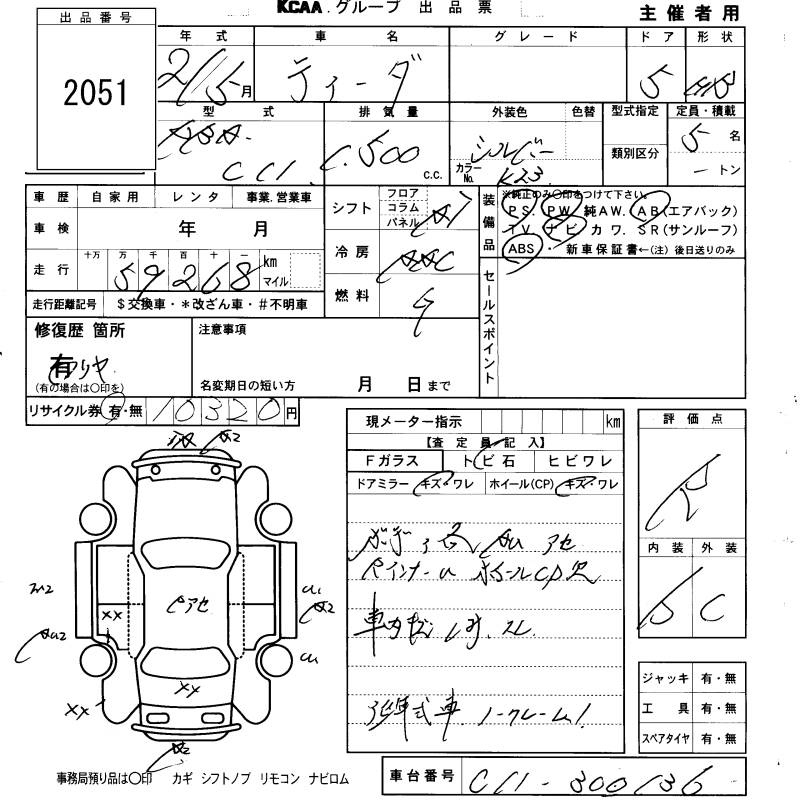 KCAA グループ 出品票
主催者用
出品番号
2051
年式 車名 グレード ドア 形状
月 ティーダ 5 HB
型式 排気量 外装色 色替 型式指定 定員・積載
C11 1.500 c.c. シルバー 5 名
カラーNo. K23 類別区分 トン
車歴 自家用 レンタ 事業.営業車
車検 年 月
走行 十万 万 千 百 十 一 km マイル
59268
走行距離記号 $交換車・*改ざん車・#不明車
シフト フロア コラム パネル AT
冷房 AAC
燃料 G
装備品 ※純正のみ〇印をつけて下さい。
PS. PW. 純AW. AB(エアバック)
TV. ナビ カワ. SR(サンルーフ)
ABS・ 新車保証書←(注)後日送りのみ
セールスポイント
修復歴 箇所
有
(有の場合は〇印を)
注意事項
名変期日の短い方 月 日まで
リサイクル券 有・無 10320 円
現メーター指示 km
【査定員記入】
Fガラス トビ石 ヒビワレ
ドアミラー キズ・ワレ ホイール(CP) キズ・ワレ
評価点
R
内装 外装
D C
A2
A2
XX
ピアセ
XX
XX
車内
低年式車 ノークレーム!
ジャッキ 有・無
工具 有・無
スペアタイヤ 有・無
事務局預り品は〇印 カギ シフトノブ リモコン ナビロム
車台番号 C11-300136